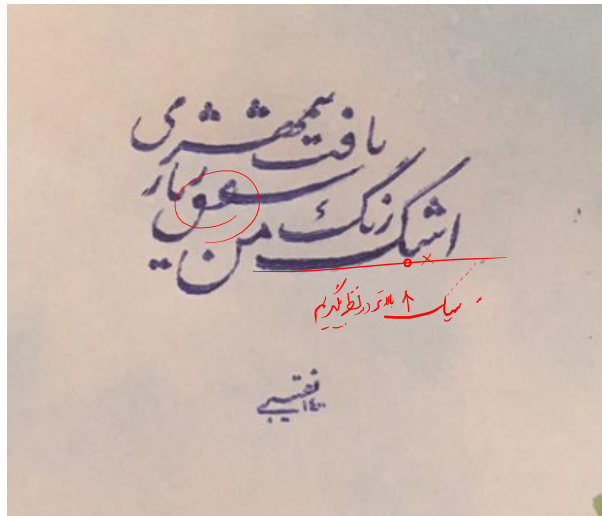 اشک من رنگ شفق یافت ز بیمهری یار
بالاتر در نظر بگیریم
۱۴۰۰